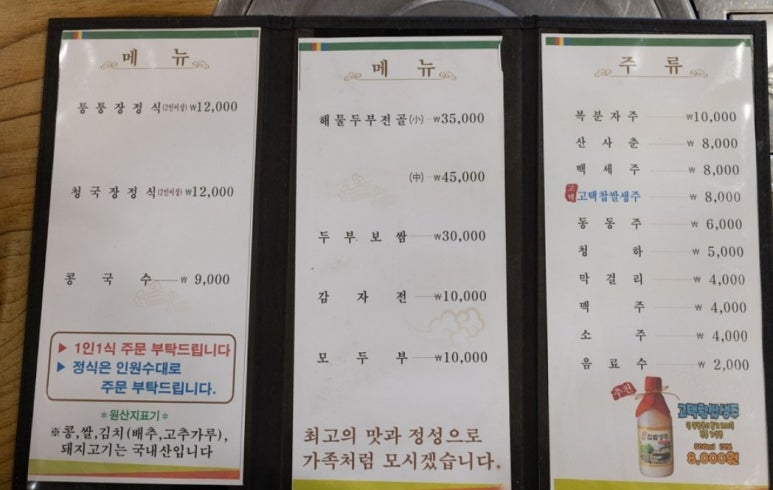 메 뉴
통통장정식(2인이상) ₩12,000
청국장정식(2인이상) ₩12,000
콩 국 수 ₩ 9,000
▶ 1인1식 주문 부탁드립니다
▶ 정식은 인원수대로
주문 부탁드립니다.
*원산지표기*
※콩,쌀,김치(배추,고추가루),
돼지고기는 국내산입니다
메 뉴
해물두부전골(小) ₩35,000
(中) ₩45,000
두 부 보 쌈 ₩30,000
감 자 전 ₩10,000
모 두 부 ₩10,000
최고의 맛과 정성으로
가족처럼 모시겠습니다.
주 류
복 분 자 주 ₩10,000
산 사 춘 ₩ 8,000
백 세 주 ₩ 8,000
고택 고택찹쌀생주 ₩ 8,000
동 동 주 ₩ 6,000
청 하 ₩ 5,000
막 걸 리 ₩ 4,000
맥 주 ₩ 4,000
소 주 ₩ 4,000
음 료 수 ₩ 2,000
추천
고택찹쌀생주
8,000원